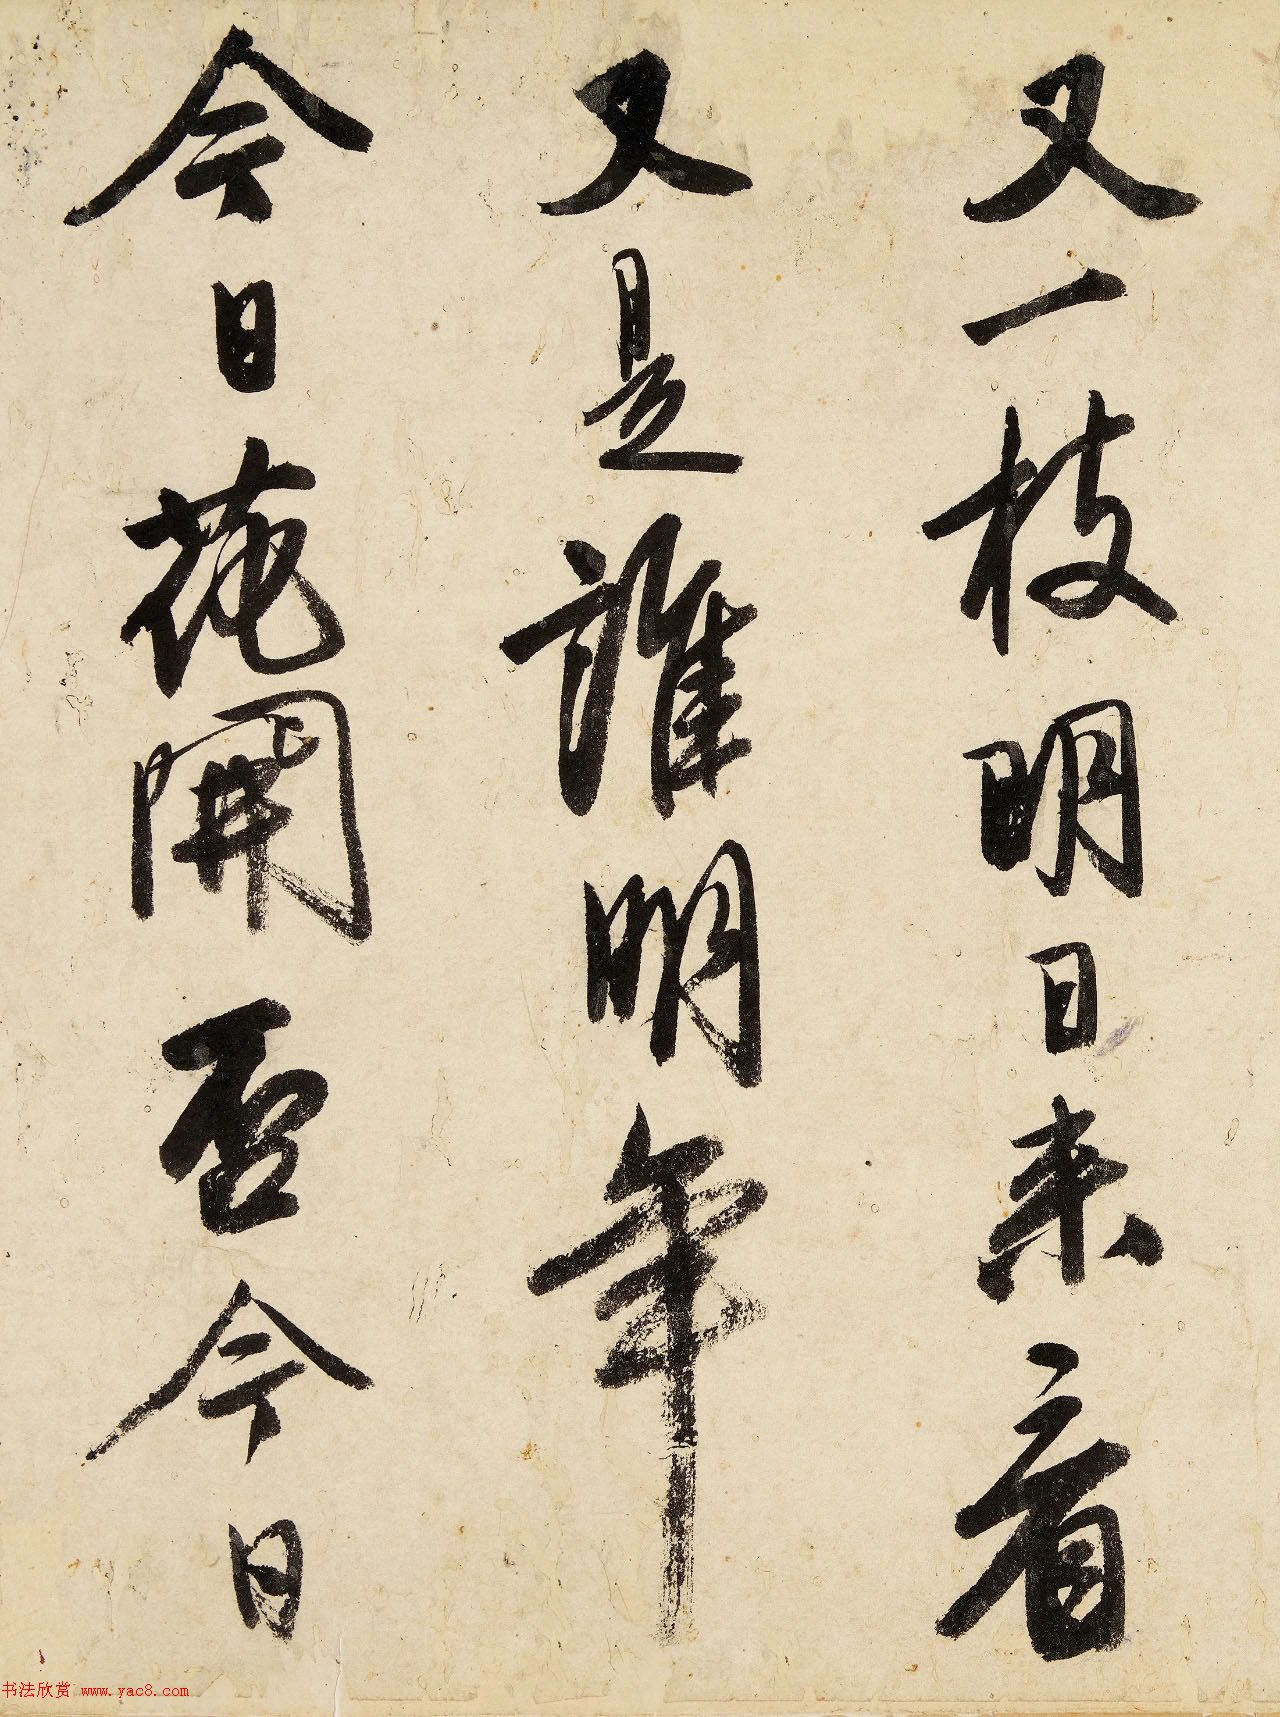 又一枝明日来看
又是誰明年
今日花開否今日
书法欣赏 www.yac8.com